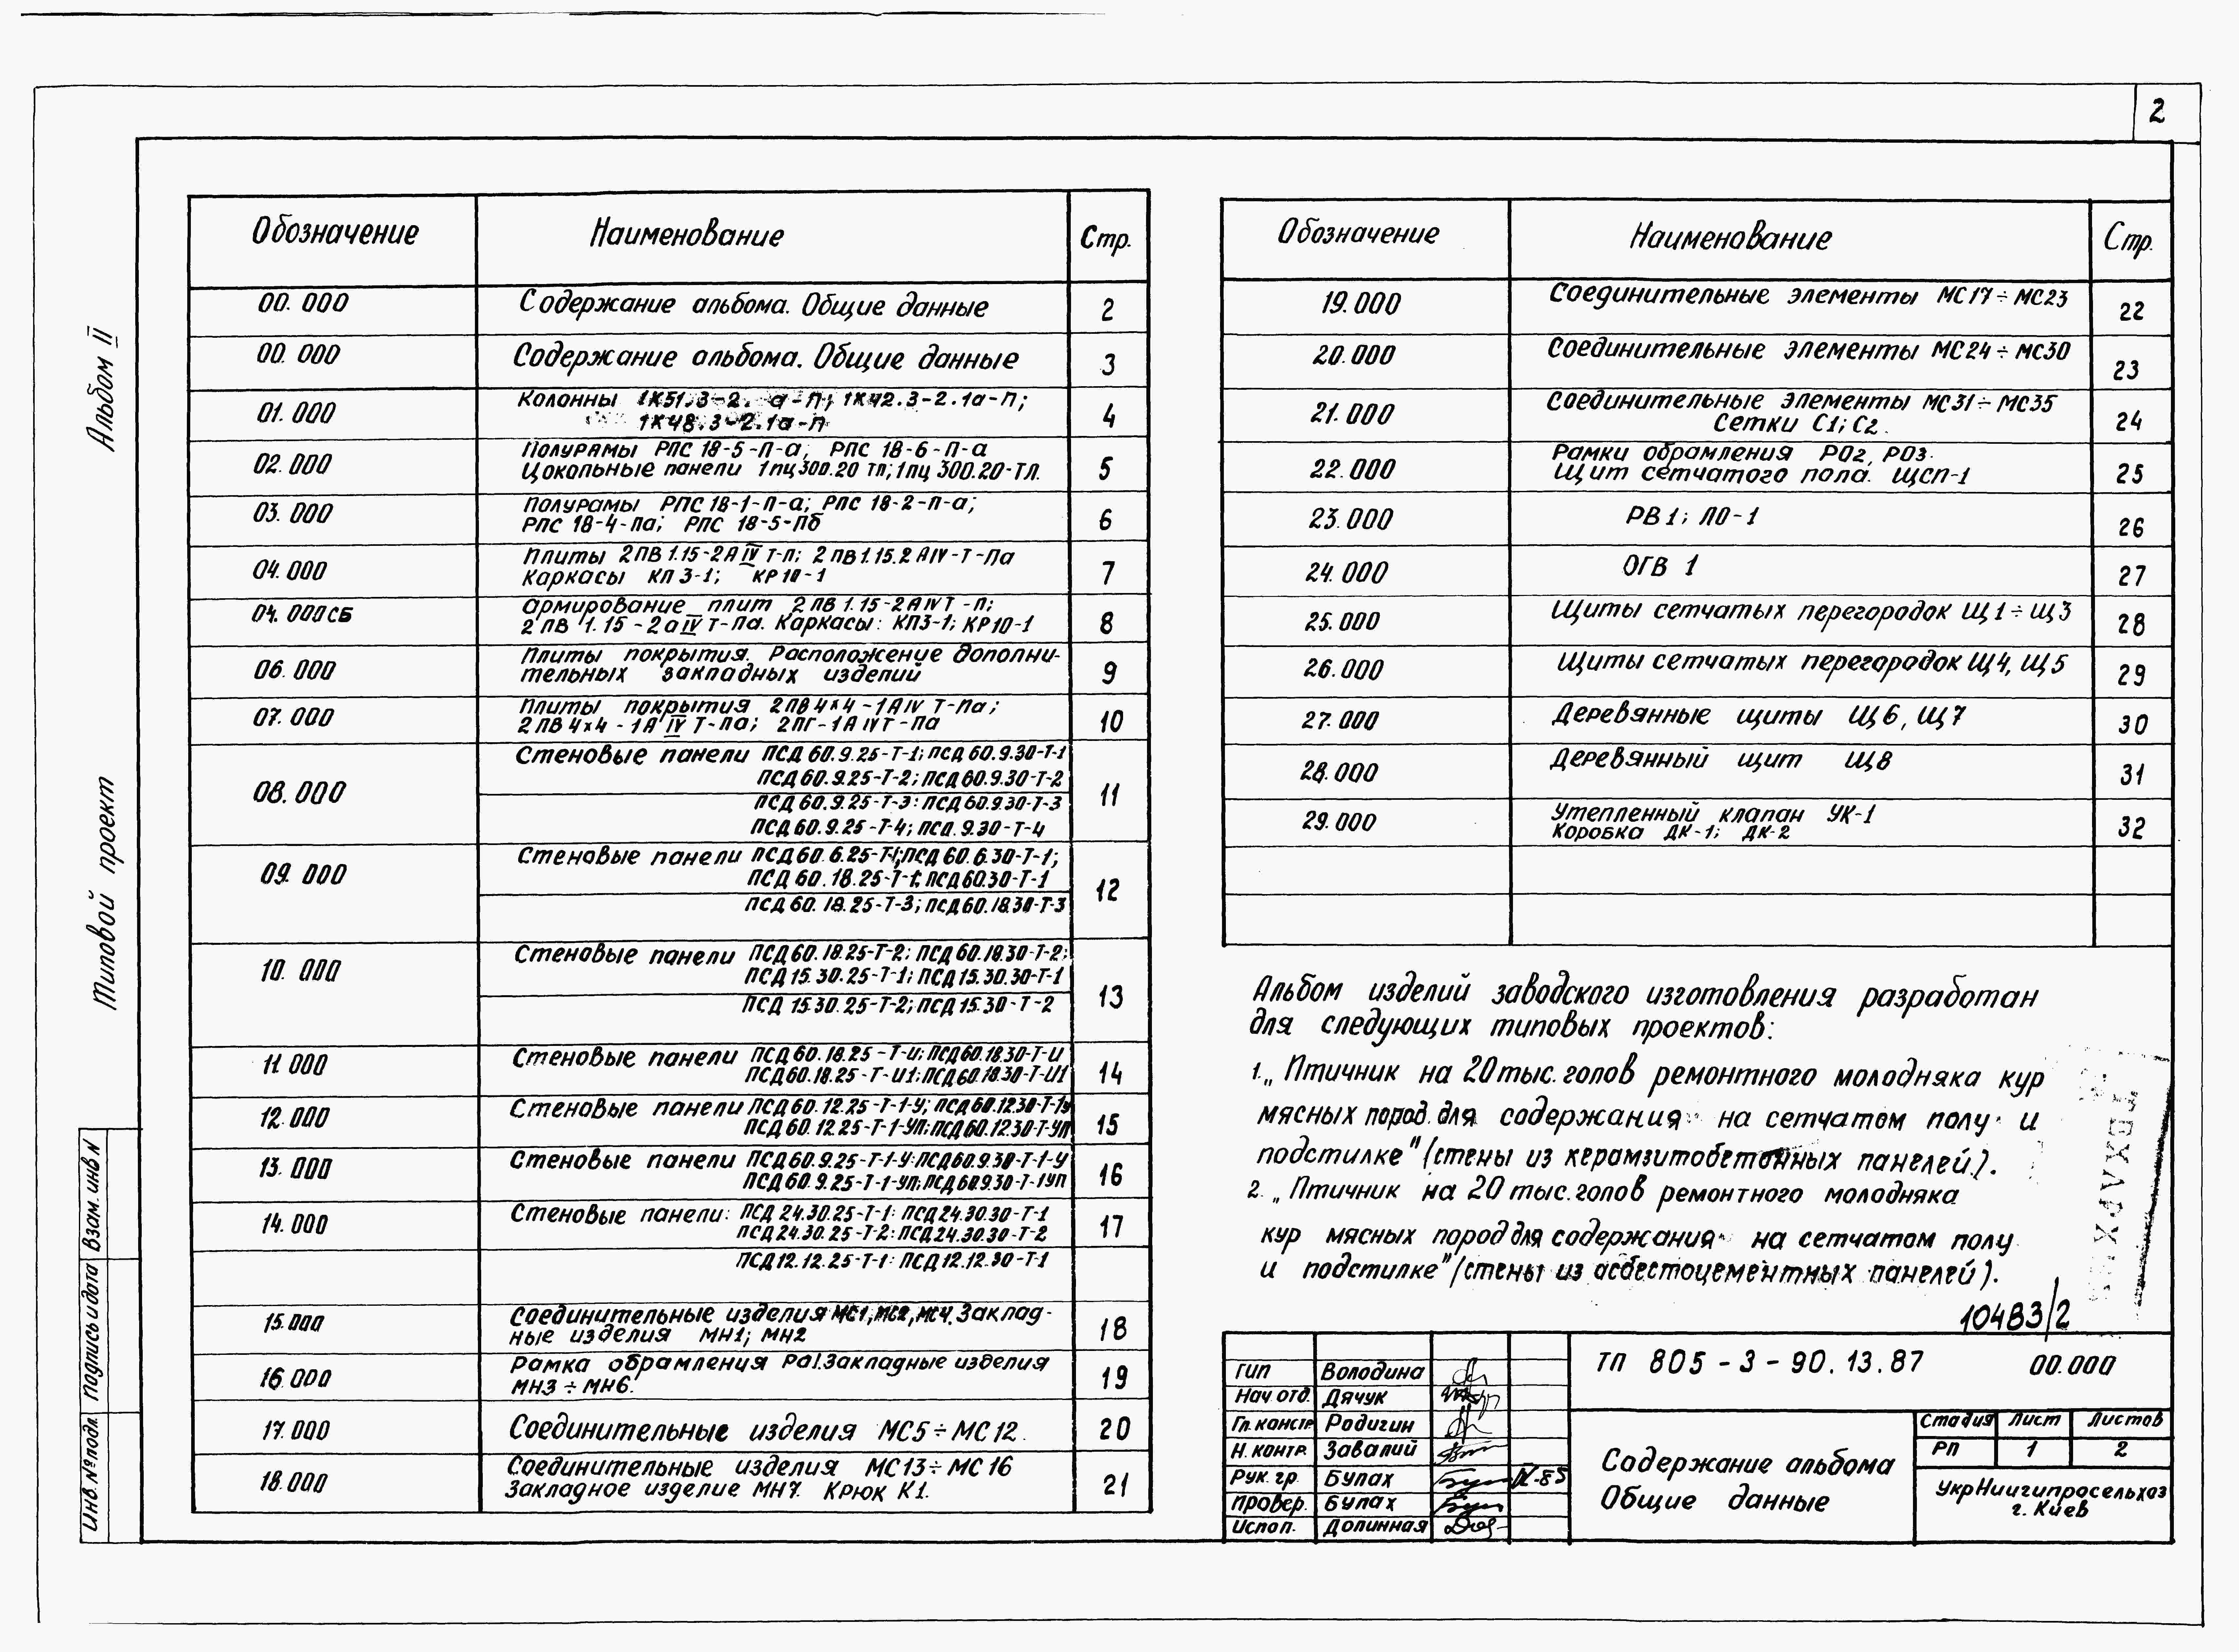 2
Альбом II
Типовой проект
Взам. инв N
Подпись и дата
Инв. № подл.
Обозначение Наименование Стр.
00. 000 Содержание альбома. Общие данные 2
00. 000 Содержание альбома. Общие данные 3
01. 000 Колонны 1К51.3-2. а-п; 1К42.3-2.1а-п; 4
1К48.3-2.1а-п
02. 000 Полурямы РПС 18-5-п-а; РПС 18-6-п-а 5
Цокольные панели 1пц300.20 тл; 1пц 300.20-тл.
03. 000 Полурамы РПС 18-1-п-а; РПС 18-2-п-а; 6
РПС 18-4-па; РПС 18-5-пб
04. 000 Плиты 2ПВ 1.15-2А IV т-п; 2ПВ 1.15.2 АIV-т-па 7
Каркасы КП 3-1; КР 10-1
04. 000СБ Армирование плит 2ПВ 1.15-2АIVТ-п; 8
2ПВ 1.15-2аIV т-па. Каркасы: КП3-1; КР10-1
06. 000 Плиты покрытия. Расположение дополни- 9
тельных закладных изделий
07. 000 Плиты покрытия 2ПВ 4х4-1АIV т-па; 10
2ПВ 4х4-1А IV т-па; 2ПГ-1А IVт-па
08. 000 Стеновые панели ПСД 60.9.25-т-1; ПСД 60.9.30-т-1 11
ПСД 60.9.25-т-2; ПСД 60.9.30-т-2
ПСД 60.9.25-т-3: ПСД 60.9.30-т-3
ПСД 60.9.25-т-4; ПСД. 9.30-т-4
09. 000 Стеновые панели ПСД 60.6.25-т-1; ПСД 60.6.30-т-1; 12
ПСД 60.18.25-т-1: ПСД 60.30-т-1
ПСД 60.18.25-т-3; ПСД 60.18.30-т-3
10. 000 Стеновые панели ПСД 60.18.25-т-2; ПСД 60.18.30-т-2; 13
ПСД 15.30.25-т-1; ПСД 15.30.30-т-1
ПСД 15.30.25-т-2; ПСД 15.30-т-2
11. 000 Стеновые панели ПСД 60.18.25-т-и; ПСД 60.18.30-т-и 14
ПСД 60.18.25-т-и1; ПСД 60.18.30-т-и1
12. 000 Стеновые панели ПСД 60.12.25-т-1-у; ПСД 60.12.30-т-1у 15
ПСД 60.12.25-т-1-уп; ПСД 60.12.30-т-уп
13. 000 Стеновые панели ПСД 60.9.25-т-1-у: ПСД 60.9.30-т-1-у 16
ПСД 60.9.25-т-1-уп: ПСД 60.9.30-т-1уп
14. 000 Стеновые панели: ПСД 24.30.25-т-1: ПСД 24.30.30-т-1 17
ПСД 24.30.25-т-2: ПСД 24.30.30-т-2
ПСД 12.12.25-т-1: ПСД 12.12.30-т-1
15. 000 Соединительные изделия МС1, МС2, МС4. Заклад- 18
ные изделия МН1; МН2
16. 000 Рамка обрамления Ра1. Закладные изделия 19
МН3 ÷ МН6.
17. 000 Соединительные изделия МС5 ÷ МС 12. 20
18. 000 Соединительные изделия МС13 ÷ МС 16 21
Закладное изделие МН7. Крюк К1.
Обозначение Наименование Стр.
19. 000 Соединительные элементы МС17 ÷ МС23 22
20. 000 Соединительные элементы МС24 ÷ МС30 23
21. 000 Соединительные элементы МС31 ÷ МС35 24
Сетки С1; С2.
22. 000 Рамки обрамления РО2, РО3. 25
Щит сетчатого пола. ЩСП-1
23. 000 РВ 1; ЛО-1 26
24. 000 ОГВ 1 27
25. 000 Щиты сетчатых перегородок Щ1 ÷ Щ3 28
26. 000 Щиты сетчатых перегородок Щ4, Щ5 29
27. 000 Деревянные щиты Щ6, Щ7 30
28. 000 Деревянный щит Щ8 31
29. 000 Утепленный клапан УК-1 32
Коробка ДК-1; ДК-2
Альбом изделий заводского изготовления разработан
для следующих типовых проектов:
1. „Птичник на 20 тыс. голов ремонтного молодняка кур
мясных пород для содержания на сетчатом полу и
подстилке" (стены из керамзитобетонных панелей).
2. „Птичник на 20 тыс. голов ремонтного молодняка
кур мясных пород для содержания на сетчатом полу
и подстилке" (стены из асбестоцементных панелей).
10483/2
ТП 805-3-90.13.87 00.000
ГИП Володина
Нач. отд. Дячук
Гл. констр Родигин
Н. контр. Завалий
Рук. гр. Булах
Провер. Булах
Испол. Долинная
Содержание альбома
Общие данные
Стадия Лист Листов
РП 1 2
УкрНиигипросельхоз
г. Киев